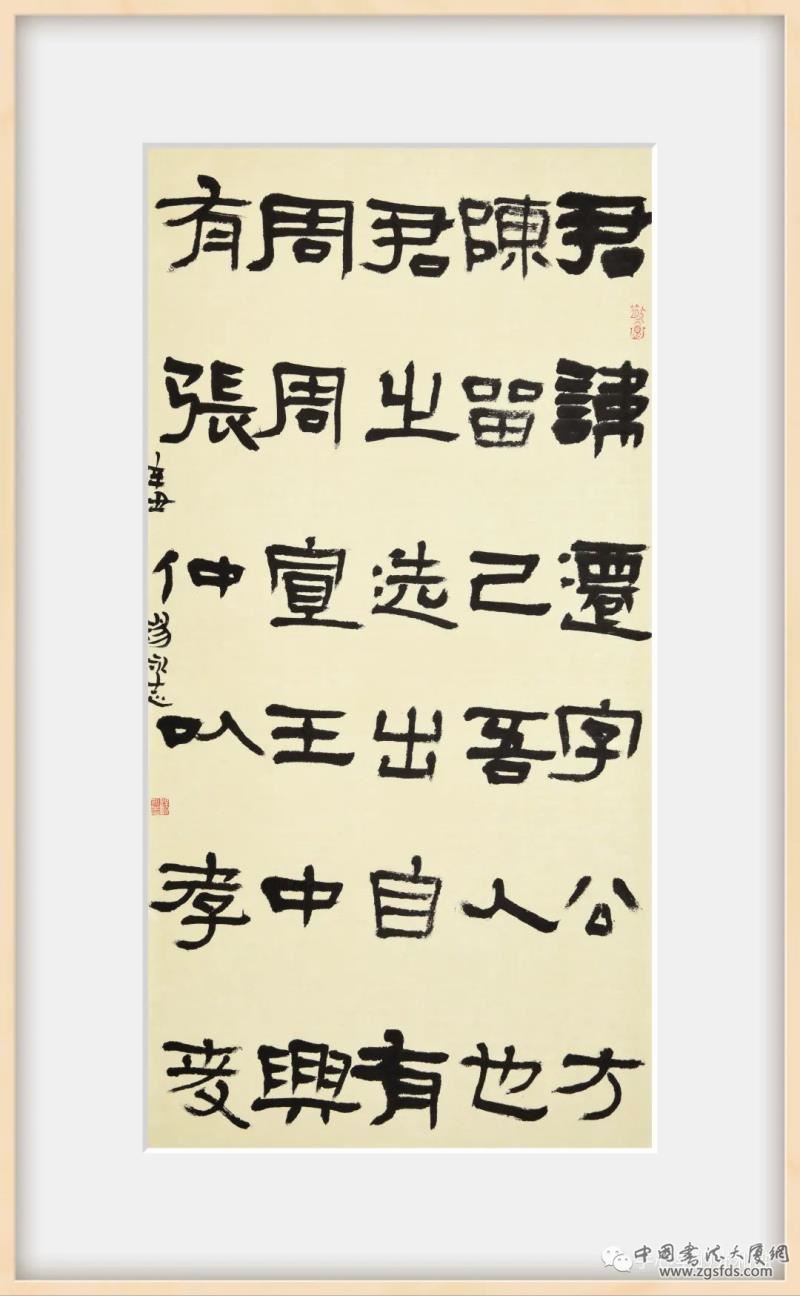 君諱遷字公方
陳留己吾人也
君之先出自有
周周宣王中興
有張仲以孝友
辛丑 楊永志
中國書法大厦網
www.zgsfds.com